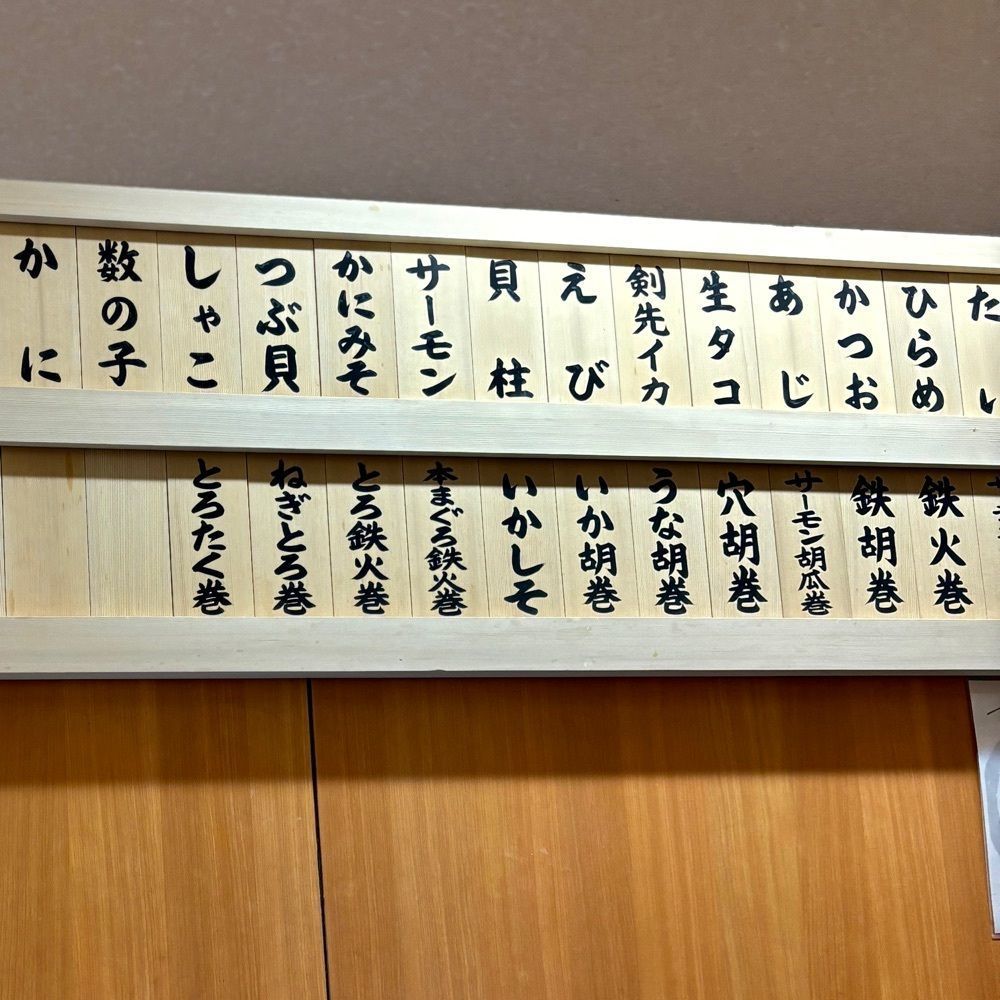 たい
ひらめ
かつお
あじ
生タコ
剣先イカ
えび
貝柱
サーモン
かにみそ
つぶ貝
しゃこ
数の子
かに
鉄火巻
鉄胡巻
サーモン胡瓜巻
穴胡巻
うな胡巻
いか胡巻
いかしそ
本まぐろ鉄火巻
とろ鉄火巻
ねぎとろ巻
とろたく巻